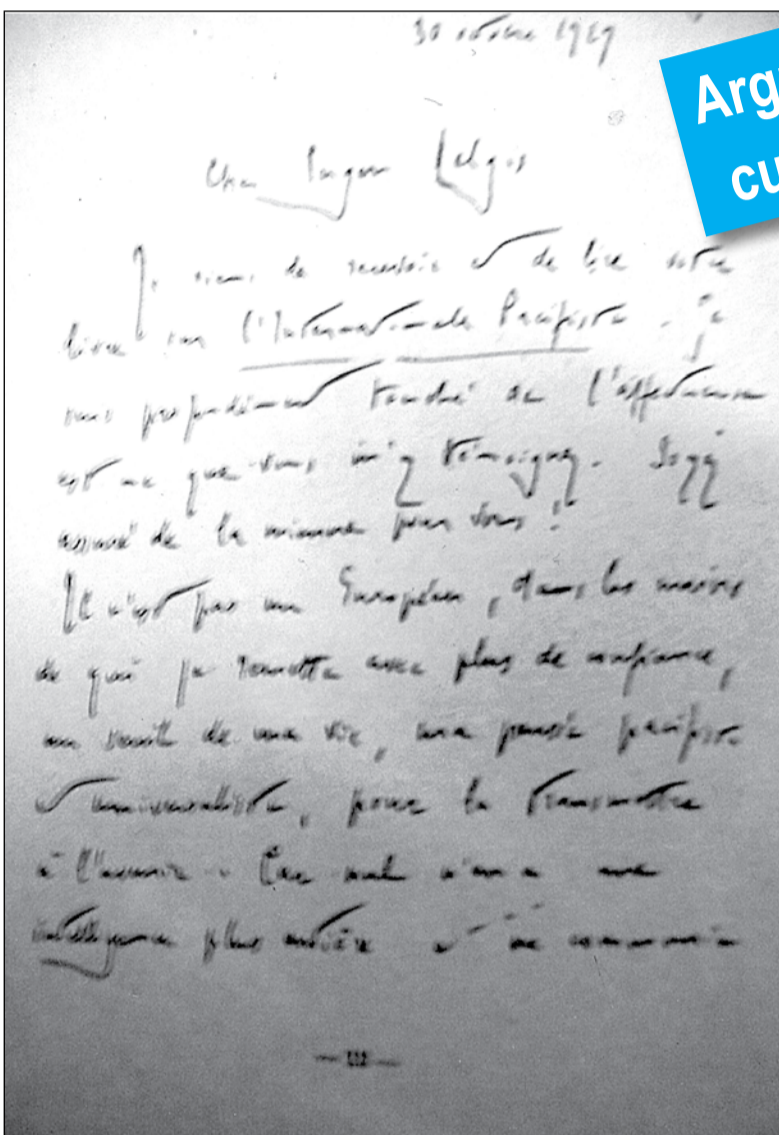 30 octobre 1929
Arg
cu
Cher Eugen Relgis
Je viens de recevoir et de lire votre
livre sur l'Internationale Pacifiste. Je
suis profondément touché de l'affectueuse
estime que vous m'y témoignez. Soyez
assuré de la mienne pour vous !
Il n'est pas un Européen, dans les mains
de qui je remette avec plus de confiance,
au de ma vie, ma pensée pacifiste
et universaliste, pour la transmettre
à l'avenir. Car nul n'en a une
intelligence plus entière et ne